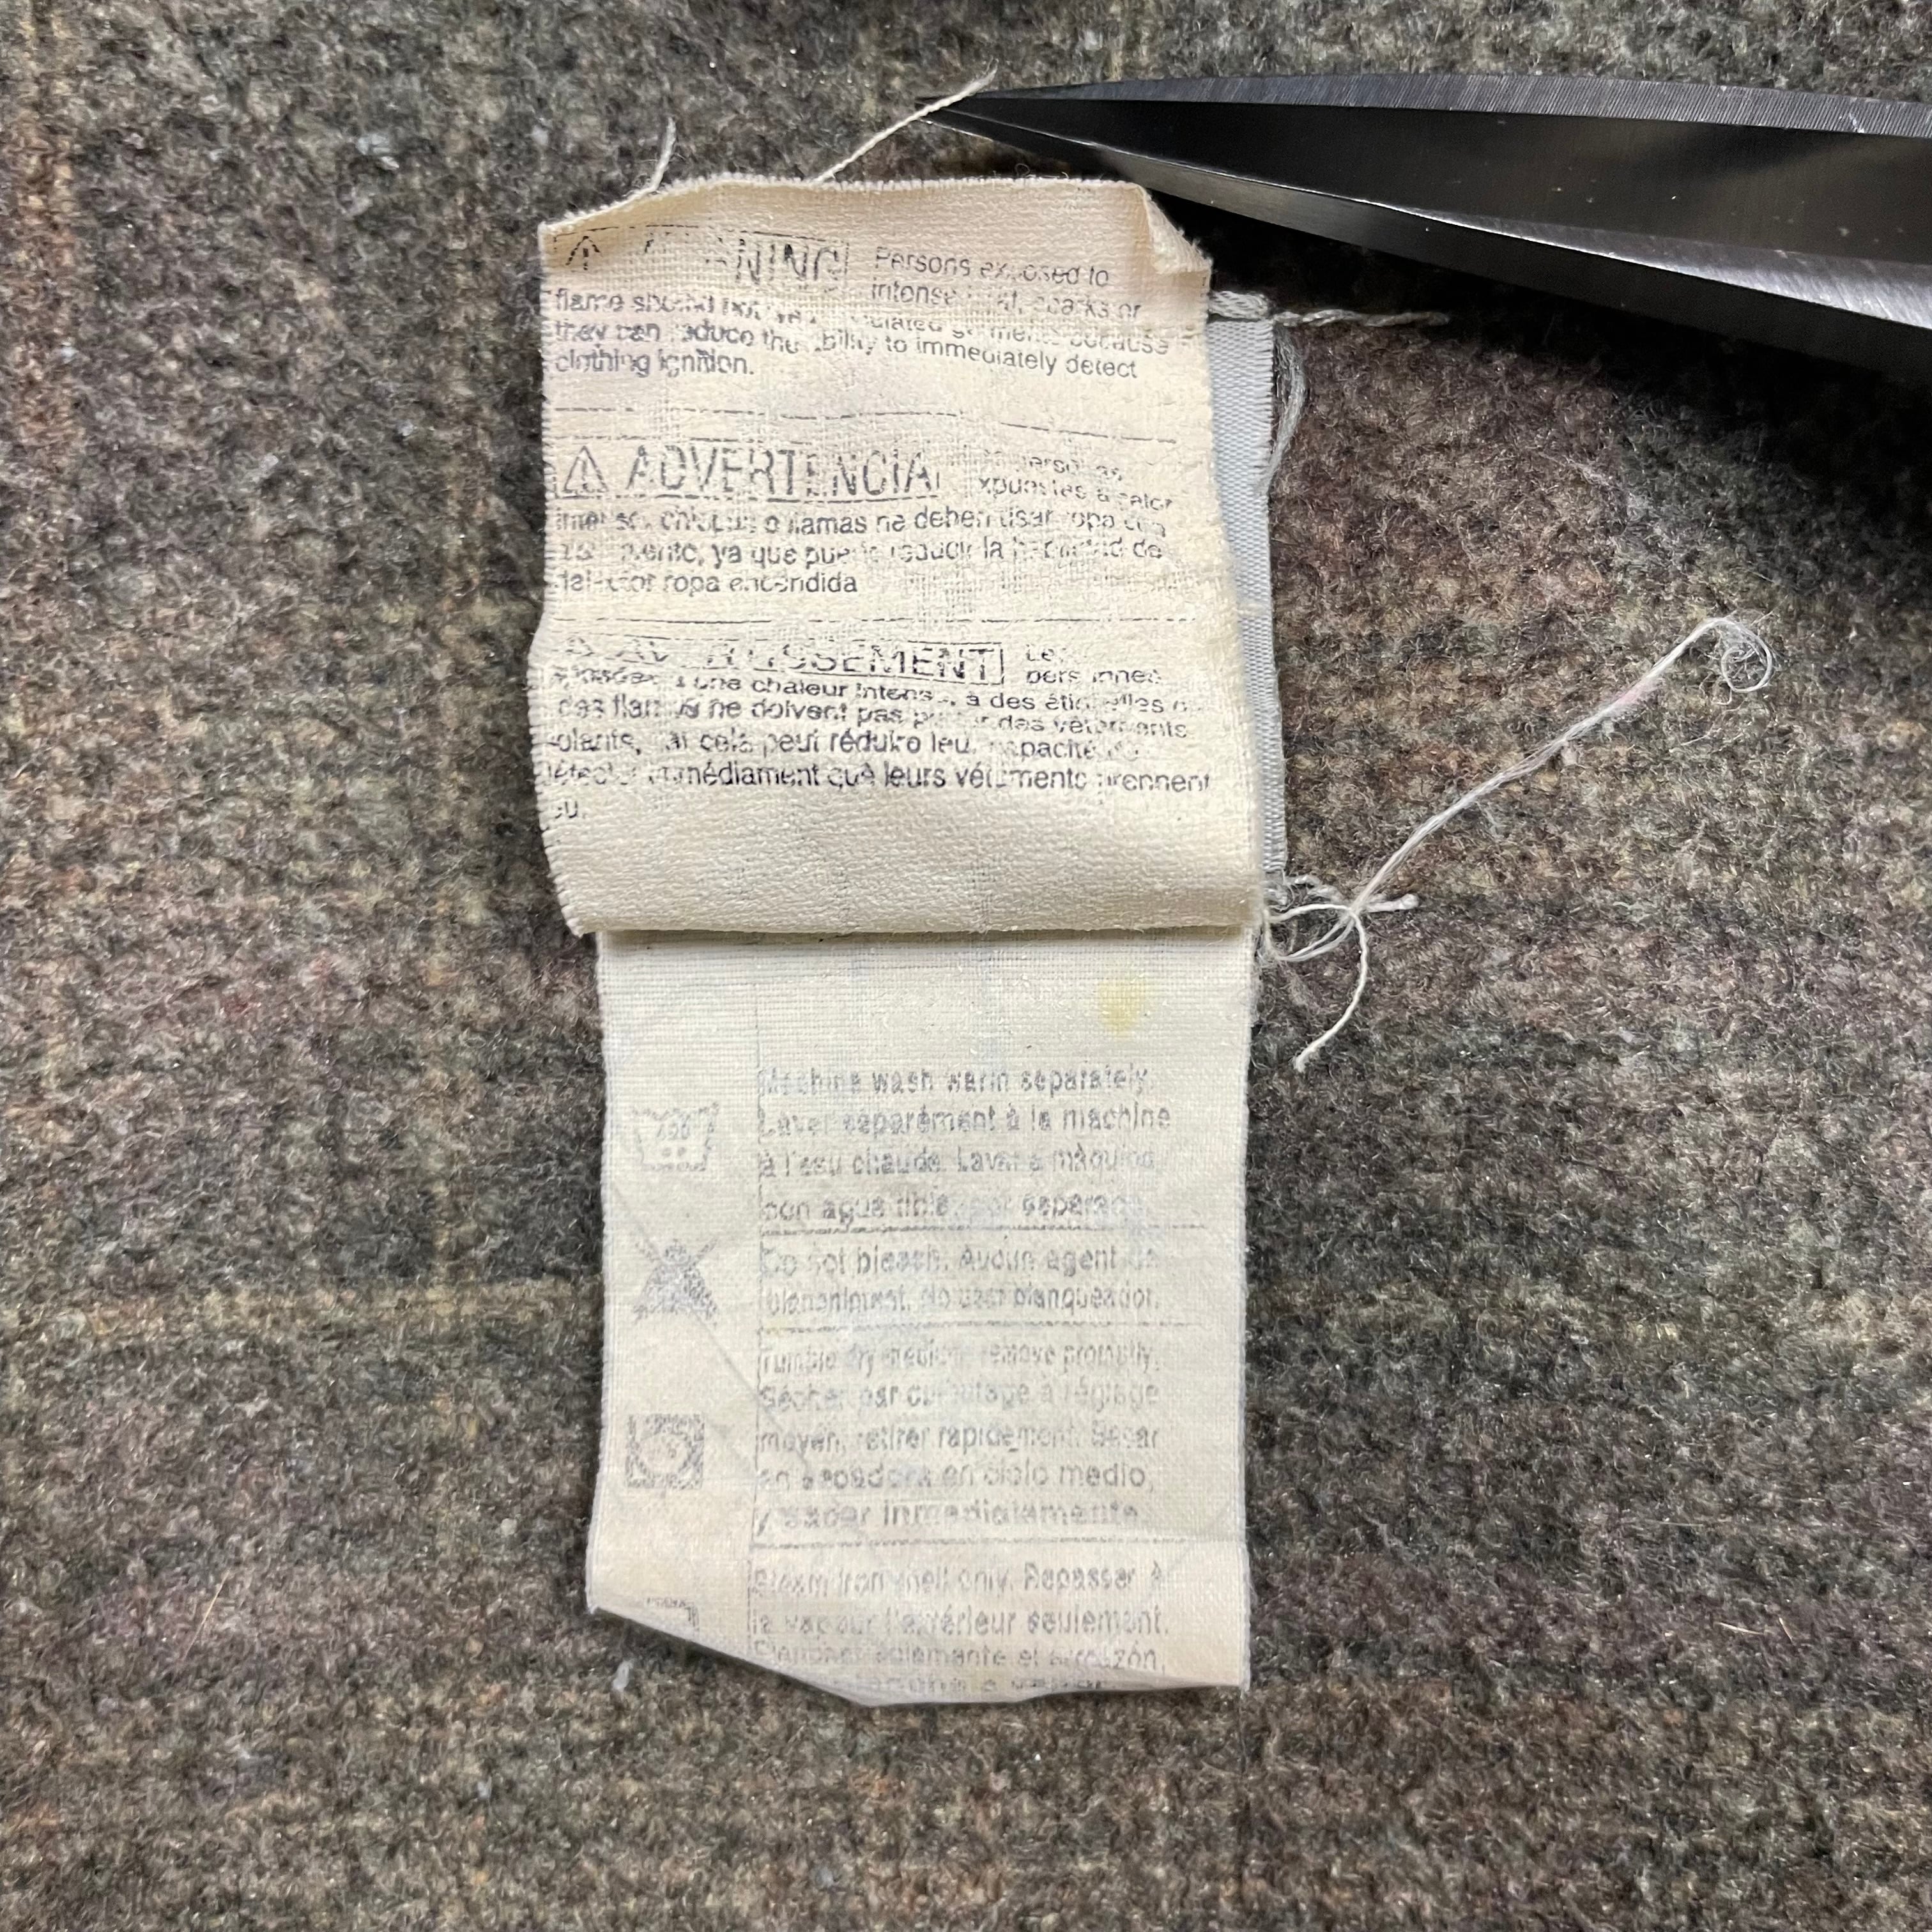 WARNING Persons exposed to
intense heat, sparks or
flame should not insulated garments because
they can reduce the ability to immediately detect
clothing ignition.
ADVERTENCIA personas
expuestas a calor
chispas o llamas no deben usar ropa con
ya que puede reducir la habilidad de
ropa encendida
AVERTISSEMENT Les
personnes
à une chaleur intense, à des étincelles ou
des flammes ne doivent pas porter des vêtements
isolants, car cela peut réduire leur capacité de
détecter immédiament que leurs vêtements prennent
feu.
Machine wash warm separately.
Laver séparément à la machine
à l'eau chaude. Lavar a máquina
con agua tibia por separado.
Do not bleach. Aucun agent de
blanchiment. No usar blanqueador.
Tumble dry medium, remove promptly.
Sécher par culbutage à réglage
moyen, retirer rapidement. Secar
en secadora en ciclo medio,
y sacar inmediatamente.
Steam iron shell only. Repasser à
la vapeur l'extérieur seulement.